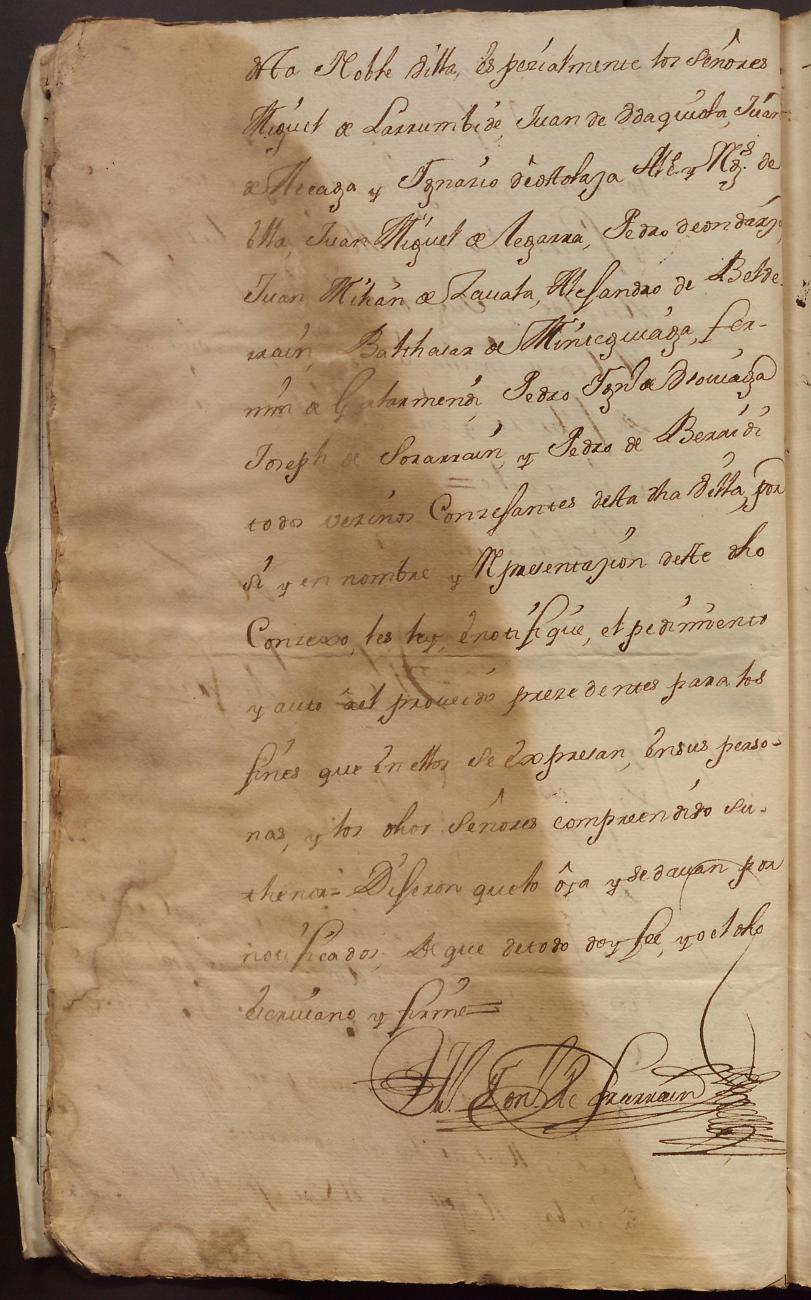 desta Noble Villa, Espezialmente los Señores
Miguel de Larrumbide, Juan de Juan
de Aleaga y Ygnazio de Alc.e y de
Villa, Juan Miguel de Legarra, Pedro de
Juan Milian de Zavala, Alesandro de Belde-
rrain, Balthasar de Fer-
min de Galarmendi, Pedro Ygn.o de
Joseph de Sorarrain, y Pedro de Beraidi
todos vezinos Conzejantes desta dha Villa, por
sí y en nombre y Representazion deste dho
Conzexo, les ley, e notifiqué, el pedimiento
y auto a el proueido prezedentes para los
fines que en ellos se Expresan, en sus perso-
nas, y los dhos Señores compreendido su
thenor= Dijeron que lo oya y se dauan por
notificados, de que de todo doy feé, yo el dho
Escriuano y firmé=